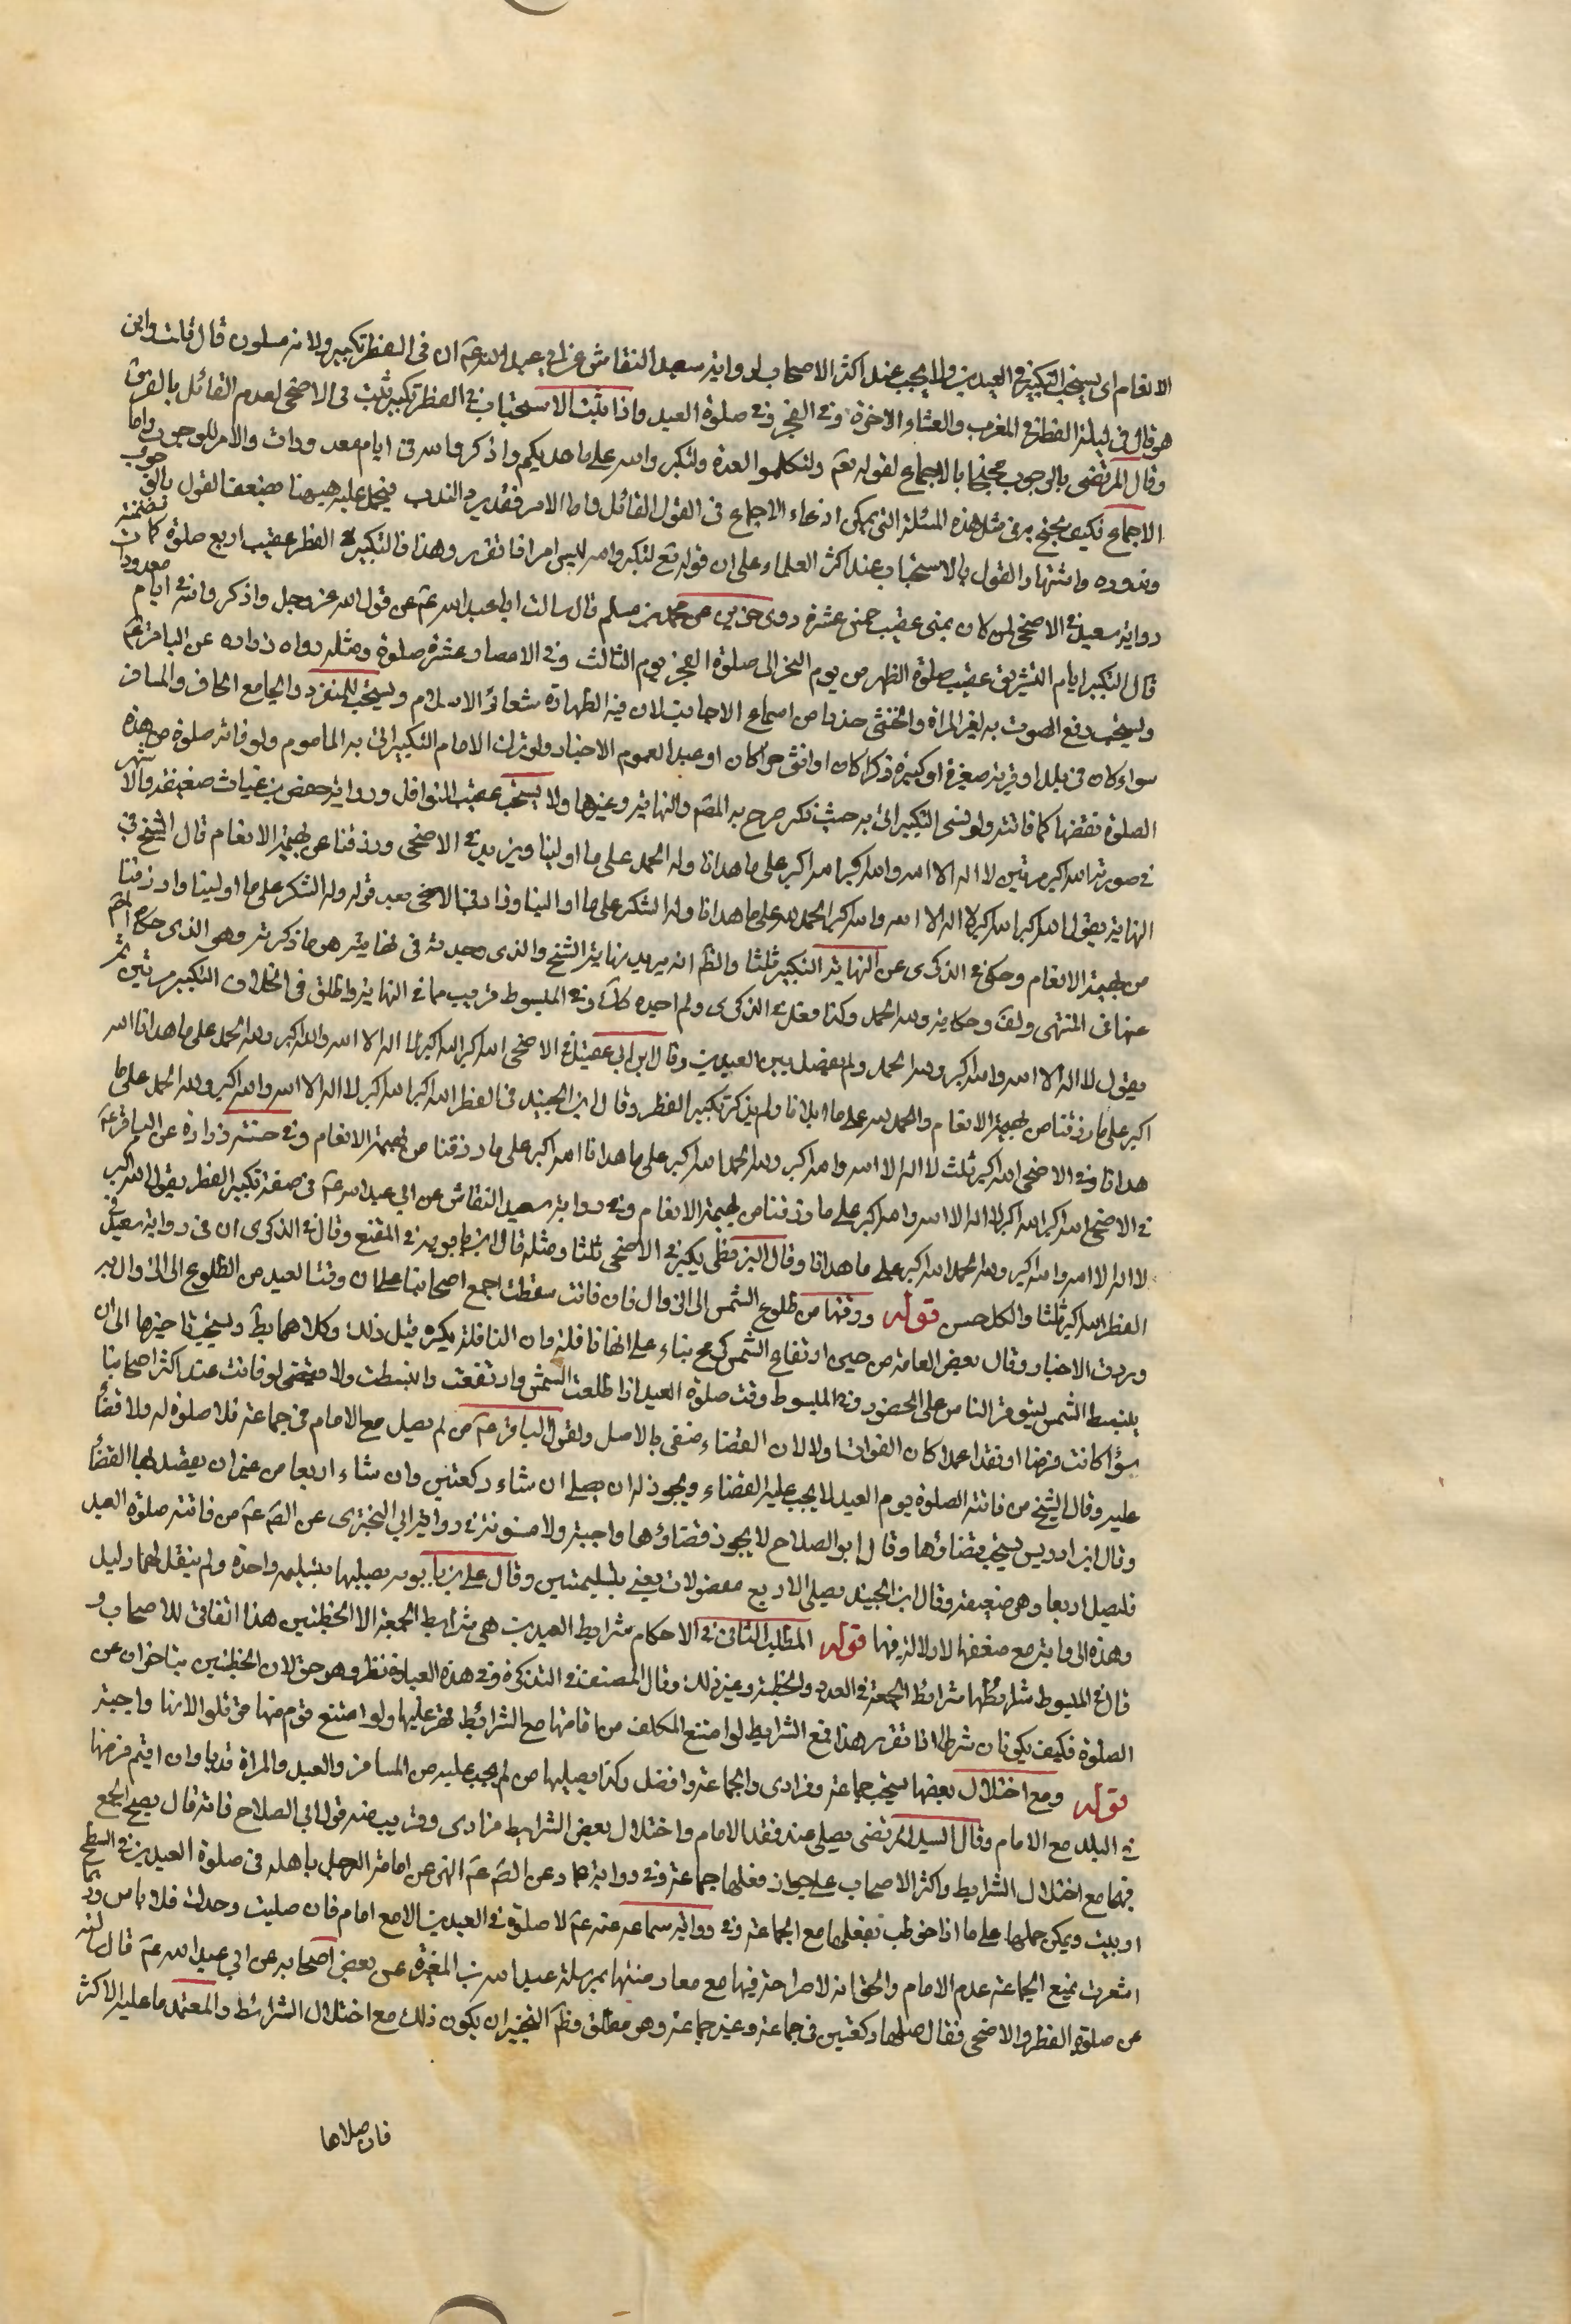 الانعام اى يستحب التكبير فى العيدين ولا يجب عند اكثر الاصحاب لرواية سعيد النقاش عن ابى عبد الله عم ان فى الفطر تكبير ولانه مسنون قال قلت واين
هو قال فى ليلة الفطر فى المغرب والعشاء الاخرة وفى الفجر وفى صلوة العيد واذا ثبت الاستحباب فى الفطر تكبير ثبت فى الاضحى لعدم القائل بالفرق
وقال المرتضى بالوجوب محتجا بالاجماع لقوله تعم ولتكملوا العدة ولتكبروا الله على ما هديكم واذكروا الله فى ايام معدودات والامر للوجوب واما
الاجماع فكيف يحتج به فى مثل هذه المسئلة التى يمكن ادعاء الاجماع فى القول القائل واما الامر فقد يرد الندب فيحمل عليه هيهنا لضعف القول بالوجوب
وندوره واشتهار القول بالاستحباب عند اكثر العلماء على ان قوله تع لتكبروا الله ليس امرا اذا تقرر هذا فالتكبير فى الفطر عقيب اربع صلوة كما تضمنته
رواية سعيد وفى الاضحى لمن كان بمنى عقيب خمس عشرة روى حريز عن محمد بن مسلم قال سالت ابا عبد الله عم عن قول الله عز وجل واذكروا الله فى ايام معدودات
قال التكبير ايام التشريق عقيب صلوة الظهر من يوم النحر الى صلوة الفجر يوم الثالث وفى الامصار عشرة صلوة ومثله رواه زراره عن الباقر عم
ويستحب رفع الصوت به لغير المراة والخنثى حذرا من اسماع الاجانب لان فيه اظهارة شعائر الاسلام ويستحب للمنفرد والجامع الحاضر والمسافر
سواء كان فى بلد او قرية صغيرة او كبيرة ذكرا كان او انثى حرا كان او عبدا لعموم الاخبار ولو ترك الامام التكبير اتى به الماموم ولو فاته صلوة من هذه
الصلوة فقضها كما فاتته ولو نسى التكبير اتى به حيث ذكر صرح به المصم والنهاية وغيرها ولا يستحب عقيب النوافل ورواية حفص بن غياث ضعيفة والاشهر
فى صورته الله اكبر مرتين لا اله الا الله والله اكبر الله اكبر على ما هدانا وله الحمد على ما اولينا ويزيد فى الاضحى ورزقنا من بهيمة الانعام قال الشيخ فى
النهاية يقول الله اكبر الله اكبر لا اله الا الله والله اكبر الحمد لله على ما هدانا وله الشكر على ما اولينا وزاد فى الاضحى بعد قوله وله الشكر على ما اولينا وارزقنا
من بهيمة الانعام وحكى فى الذكرى عن النهاية التكبير ثلثا والظ انه يريد نهاية الشيخ والذى وجدته فى نهايته هو ما ذكرته وهو الذى حكاه المصم
عنها فى المنتهى ولف وحكايته ولله الحمد وكذا فعل فى الذكرى ولم اجده كك وفى المبسوط قريب مما فى النهاية واطلق فى الخلاف التكبير مرتين ثم
يقول لا اله الا الله والله اكبر ولله الحمد ولم يفصل بين العيدين وقال ابن ابى عقيل فى الاضحى الله اكبر الله اكبر لا اله الا الله والله اكبر ولله الحمد على ما هدانا الله
اكبر على ما رزقنا من بهيمة الانعام والحمد لله على ما ابلانا ولم يذكر تكبير الفطر وقال ابن الجنيد فى الفطر الله اكبر الله اكبر لا اله الا الله والله اكبر ولله الحمد على ما
هدانا وفى الاضحى الله اكبر ثلث لا اله الا الله والله اكبر ولله الحمد الله اكبر على ما هدانا الله اكبر على ما رزقنا من بهيمة الانعام وفى حسنة زرارة عن الباقر عم
فى الاضحى الله اكبر الله اكبر لا اله الا الله والله اكبر على ما رزقنا من بهيمة الانعام وفى رواية سعيد النقاش عن ابى عبد الله عم فى صفة تكبير الفطر يقول الله اكبر
لا اله الا الله والله اكبر ولله الحمد الله اكبر على ما هدانا وقال البزنطى يكبر فى الاضحى ثلثا ومثله قال ابن بابويه فى المقنع وقال فى الذكرى ان فى رواية سعيد فى
الفطر الله اكبر ثلثا والكل حسن قوله ووقتها من طلوع الشمس الى الزوال فان فاتت سقطت اجمع اصحابنا على ان وقت العيد من الطلوع الى الزوال وبه
وردت الاخبار وقال بعض العامة من حين ارتفاع الشمس كرمح بناء على انها نافلة وان النافلة يكره قبل ذلك وكلاهما بط ويستحب تاخيرها الى ان
ينبسط الشمس ليتوفر الناس على الحضور وفى المبسوط وقت صلوة العيد اذا طلعت الشمس وارتفعت وانبسطت ولا تقضى لو فاتت عند اكثر اصحابنا
سؤا كانت فرضا او نفلا عمدا كان الفوات اولا لان القضاء منفى بالاصل ولقول الباقر عم من لم يصل مع الامام فى جماعة فلا صلوة له ولا قضاء
عليه وقال الشيخ من فاتته الصلوة يوم العيد لا يجب عليه القضاء ويجوز له ان يصلى ان شاء ركعتين وان شاء اربعا من غير ان يقصد بها القضاء
وقال ابن ادريس يستحب قضاؤها وقال ابو الصلاح لا يجوز قضاؤها واجبة ولا مسنونة فى رواية ابى البخترى عن الصم عم من فاتته صلوة العيد
فليصل اربعا وهى ضعيفة وقال ابن الجنيد يصلى الاربع مفصولات يعنى بتسليمتين وقال على بن بابويه يصليها بتسليمه واحدة ولم ينقل لهما دليل
وهذه الرواية مع ضعفها لا دلالة فيها قوله المطلب الثانى فى الاحكام شرايط العيدين هى شرايط الجمعة الا الخطبتين هذا اتفاق للاصحاب و
قال فى المبسوط شرايطها شرايط الجمعة فى العدد والخطبة وغير ذلك وقال المصنف فى التذكرة وفى هذه العبادة نظر وهو حق لان الخطبتين يتاخران عن
الصلوة فكيف يكونان شرطا اذا تقرر هذا فمع الشرايط لو امتنع المكلف من اقامتها مع الشرائط قهر عليها ولو امتنع قوم منها قوتلوا لانها واجبة
قوله ومع اختلال بعضها يستحب جماعة وفرادى والجماعة افضل وكذا يصليها من لم يجب عليه من المسافر والعبد والمراة ندبا وان اقيم فرضها
فى البلد مع الامام وقال السيد المرتضى يصلى عند فقد الامام واختلال بعض الشرايط فرادى وقريب منه قول ابى الصلاح فانه قال يصح الجمع
فيها مع اختلال الشرايط واكثر الاصحاب على جواز فعلها جماعة وفى رواية عمار عن الصم عم النهى عن امامة الرجل باهله فى صلوة العيدين فى السطح
او بيت ويمكن حملها على ما اذا خوطب بفعلها مع الجماعة وفى رواية سماعه عنه عم لا صلوة فى العيدين الا مع امام فان صليت وحدك فلا باس وربما
اشعرت بمنع الجماعة عدم الامام والحق انه لا صراحة فيها مع معارضتها بمرسلة عبد الله بن المغيرة عن بعض اصحابه عن ابى عبد الله عم قال سالته
عن صلوة الفطر والاضحى فقال صلها ركعتين فى جماعة وغير جماعة وهو مطلق وظم التخيير ان يكون ذلك مع اختلال الشرائط والمعتمد ما عليه الاكثر
فان صلاها